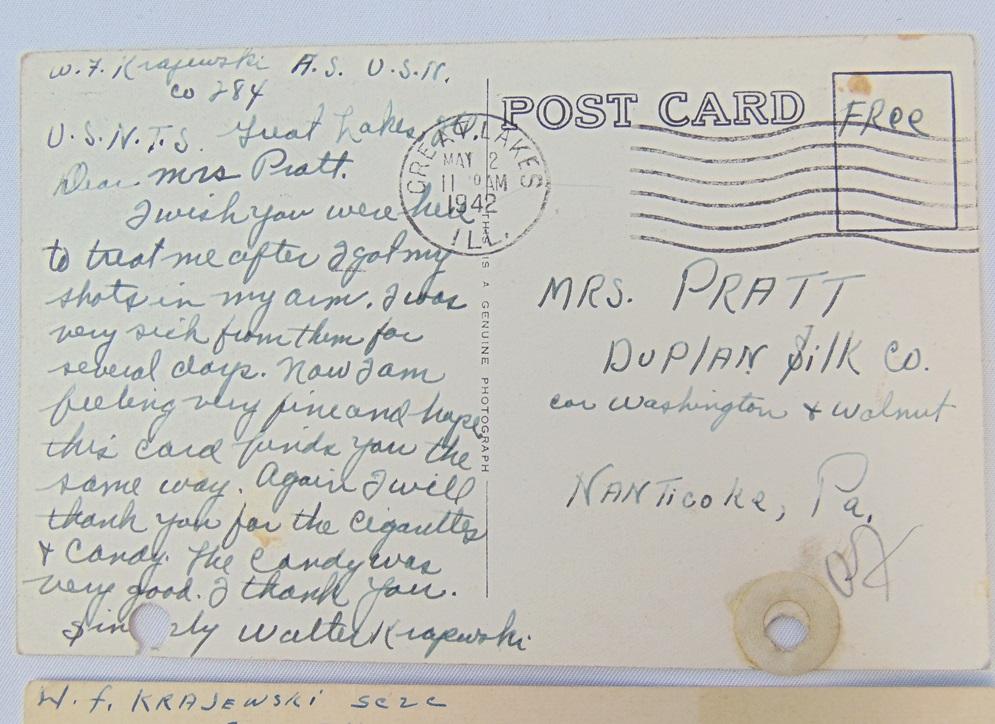 W. F. Krajewski A.S. U.S.N.
Co 284
U.S.N.T.S. Great Lakes, Ill.
Dear Mrs Pratt.
I wish you were here
to treat me after I got my
shots in my arm. I was
very sick from them for
several days. Now I am
feeling very fine and hope
this card finds you the
same way. Again I will
thank you for the Cigarettes
& Candy. The Candy was
very good. I thank you.
Sin rly Walter Krajewski
POST CARD
GREAT LAKES
MAY 2
11 AM
1942
ILL.
FRee
THIS IS A GENUINE PHOTOGRAPH
MRS. PRATT
DUPlAN SilK Co.
cor Washington & Walnut
NANTicoke, Pa.
W. F. KRAJEWSKI S2c